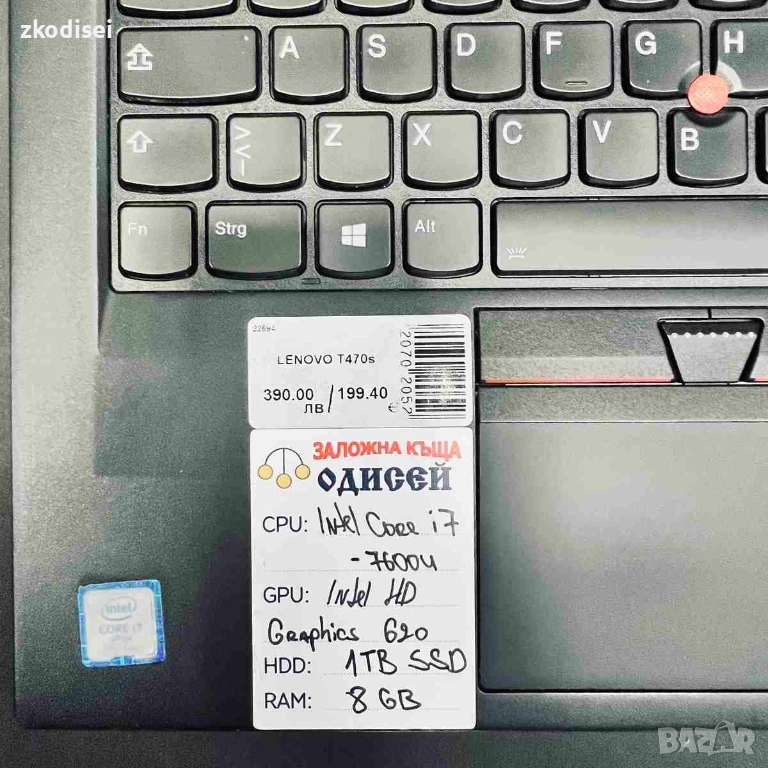 zkodisei
A S D F G H
Z X C V B
Fn Strg Alt
22694
LENOVO T470s
390.00 / 199.40
ЛВ €
2070 2052
ЗАЛОЖНА КЪЩА
ОДИСЕЙ
CPU: Intel Core i7
-7600u
GPU: Intel HD
Graphics 620
HDD: 1TB SSD
RAM: 8 GB
intel
CORE i7
BAZAR